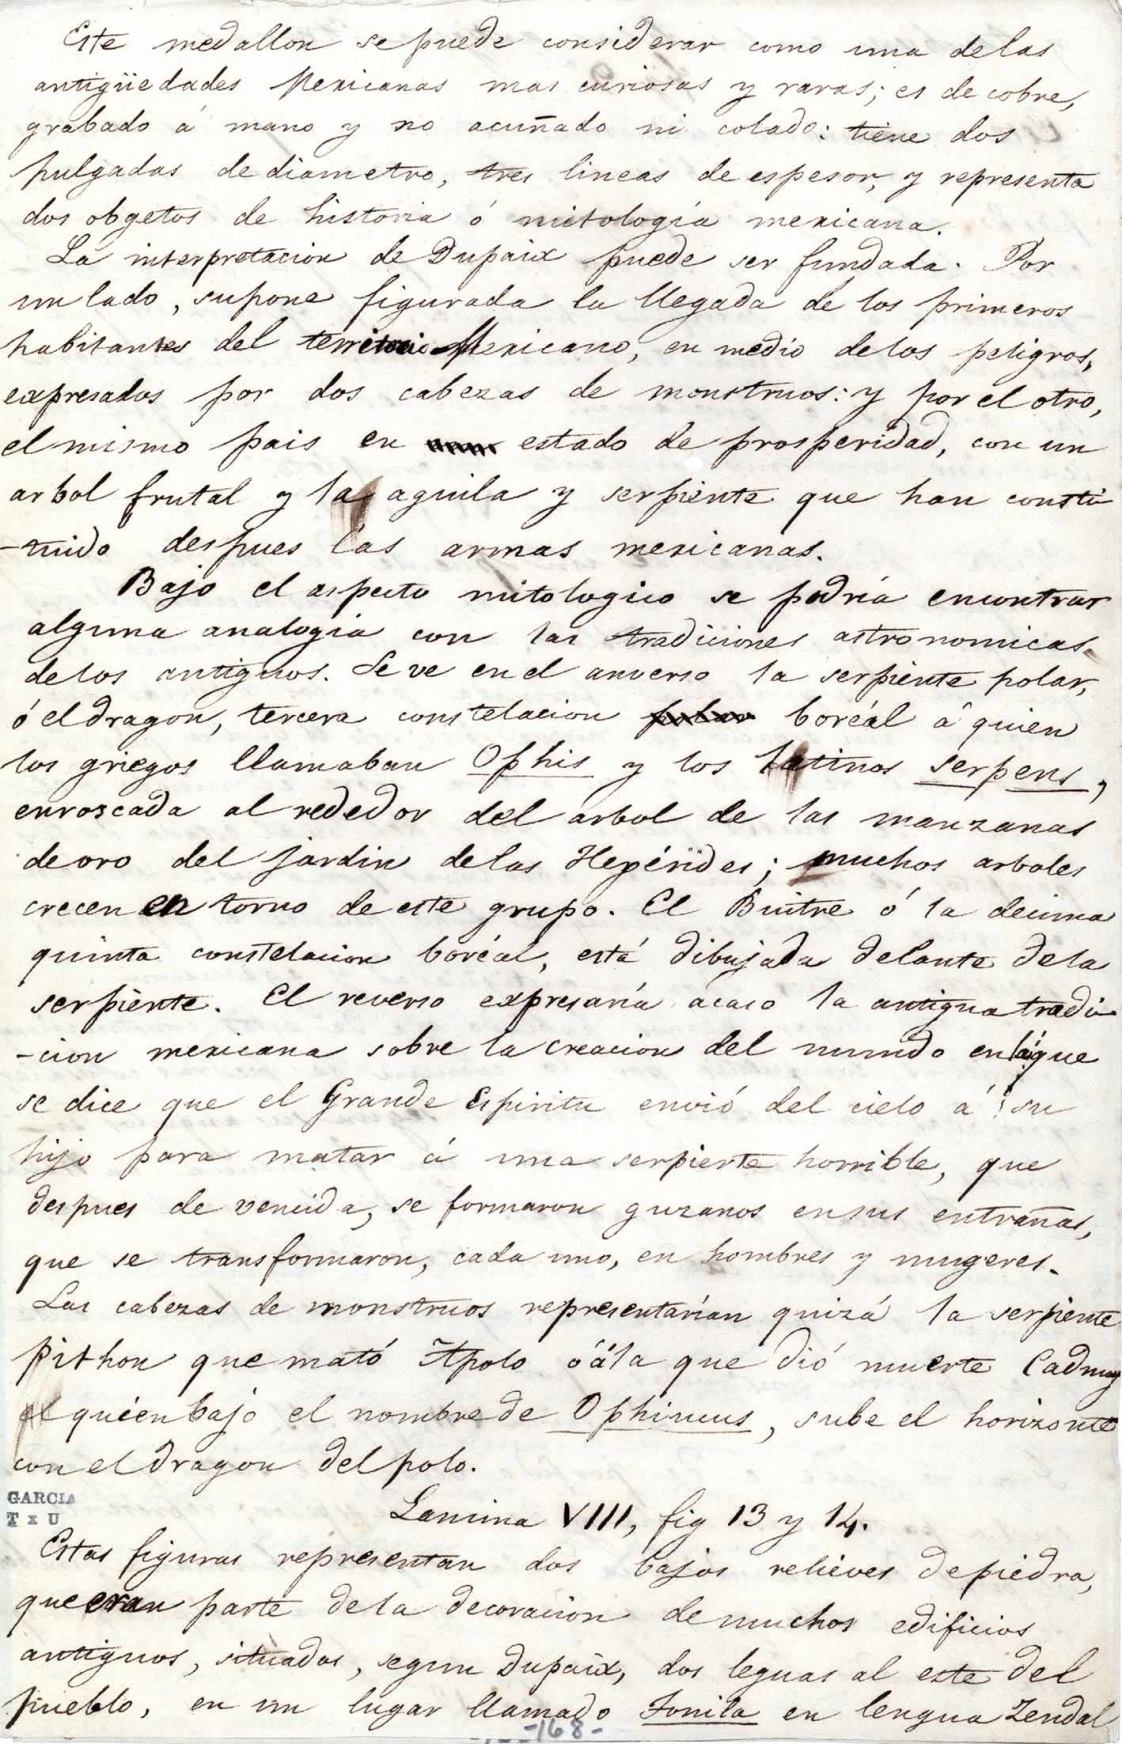 Este medallon se puede considerar como una de las
antigüedades Mexicanas mas curiosas y raras; es de cobre,
grabado á mano y no acuñado ni colado: tiene dos
pulgadas de diametro, tres lineas de espesor, y representa
dos obgetos de historia ó mitología mexicana.
La interpretacion de Dupaix puede ser fundada. Por
un lado, supone figurada la llegada de los primeros
habitantes del territorio Mexicano, en medio de los peligros,
expresados por dos cabezas de monstruos: y por el otro,
el mismo pais en estado de prosperidad, con un
arbol frutal y la aguila y serpiente que han consti
-tuido despues las armas mexicanas.
Bajo el aspecto mitologico se podría encontrar
alguna analogia con las tradiciones astronomicas
de los antiguos. Se ve en el anverso la serpiente polar,
ó el dragon, tercera constelacion boréal á quien
los griegos llamaban Ophis y los latinos serpens,
enroscada al rededor del arbol de las manzanas
de oro del jardin de las Hepérides; muchos arboles
crecen en torno de este grupo. El Buitre ó la decima
quinta constelacion boréal, está dibujada delante de la
serpiente. El reverso expresaría acaso la antigua tradi
-cion mexicana sobre la creacion del mundo en la que
se dice que el Grande Espiritu envió del cielo á su
hijo para matar á una serpiente horrible, que
despues de vencida, se formaron guzanos en sus entrañas,
que se transformaron, cada uno, en hombres y mugeres.
Las cabezas de monstruos representarían quizá la serpiente
pithon que mató Apolo ó á la que dió muerte Cadmo
quien bajo el nombre de Ophincus, sube el horizonte
con el dragon del polo.
GARCIA
T x U
Lamina VIII, fig 13 y 14.
Estas figuras representan dos bajos relieves de piedra,
que eran parte de la decoracion de muchos edificios
antiguos, situados, segun Dupaix, dos leguas al este del
pueblo, en un lugar llamado Tonila en lengua Zendal
-168-